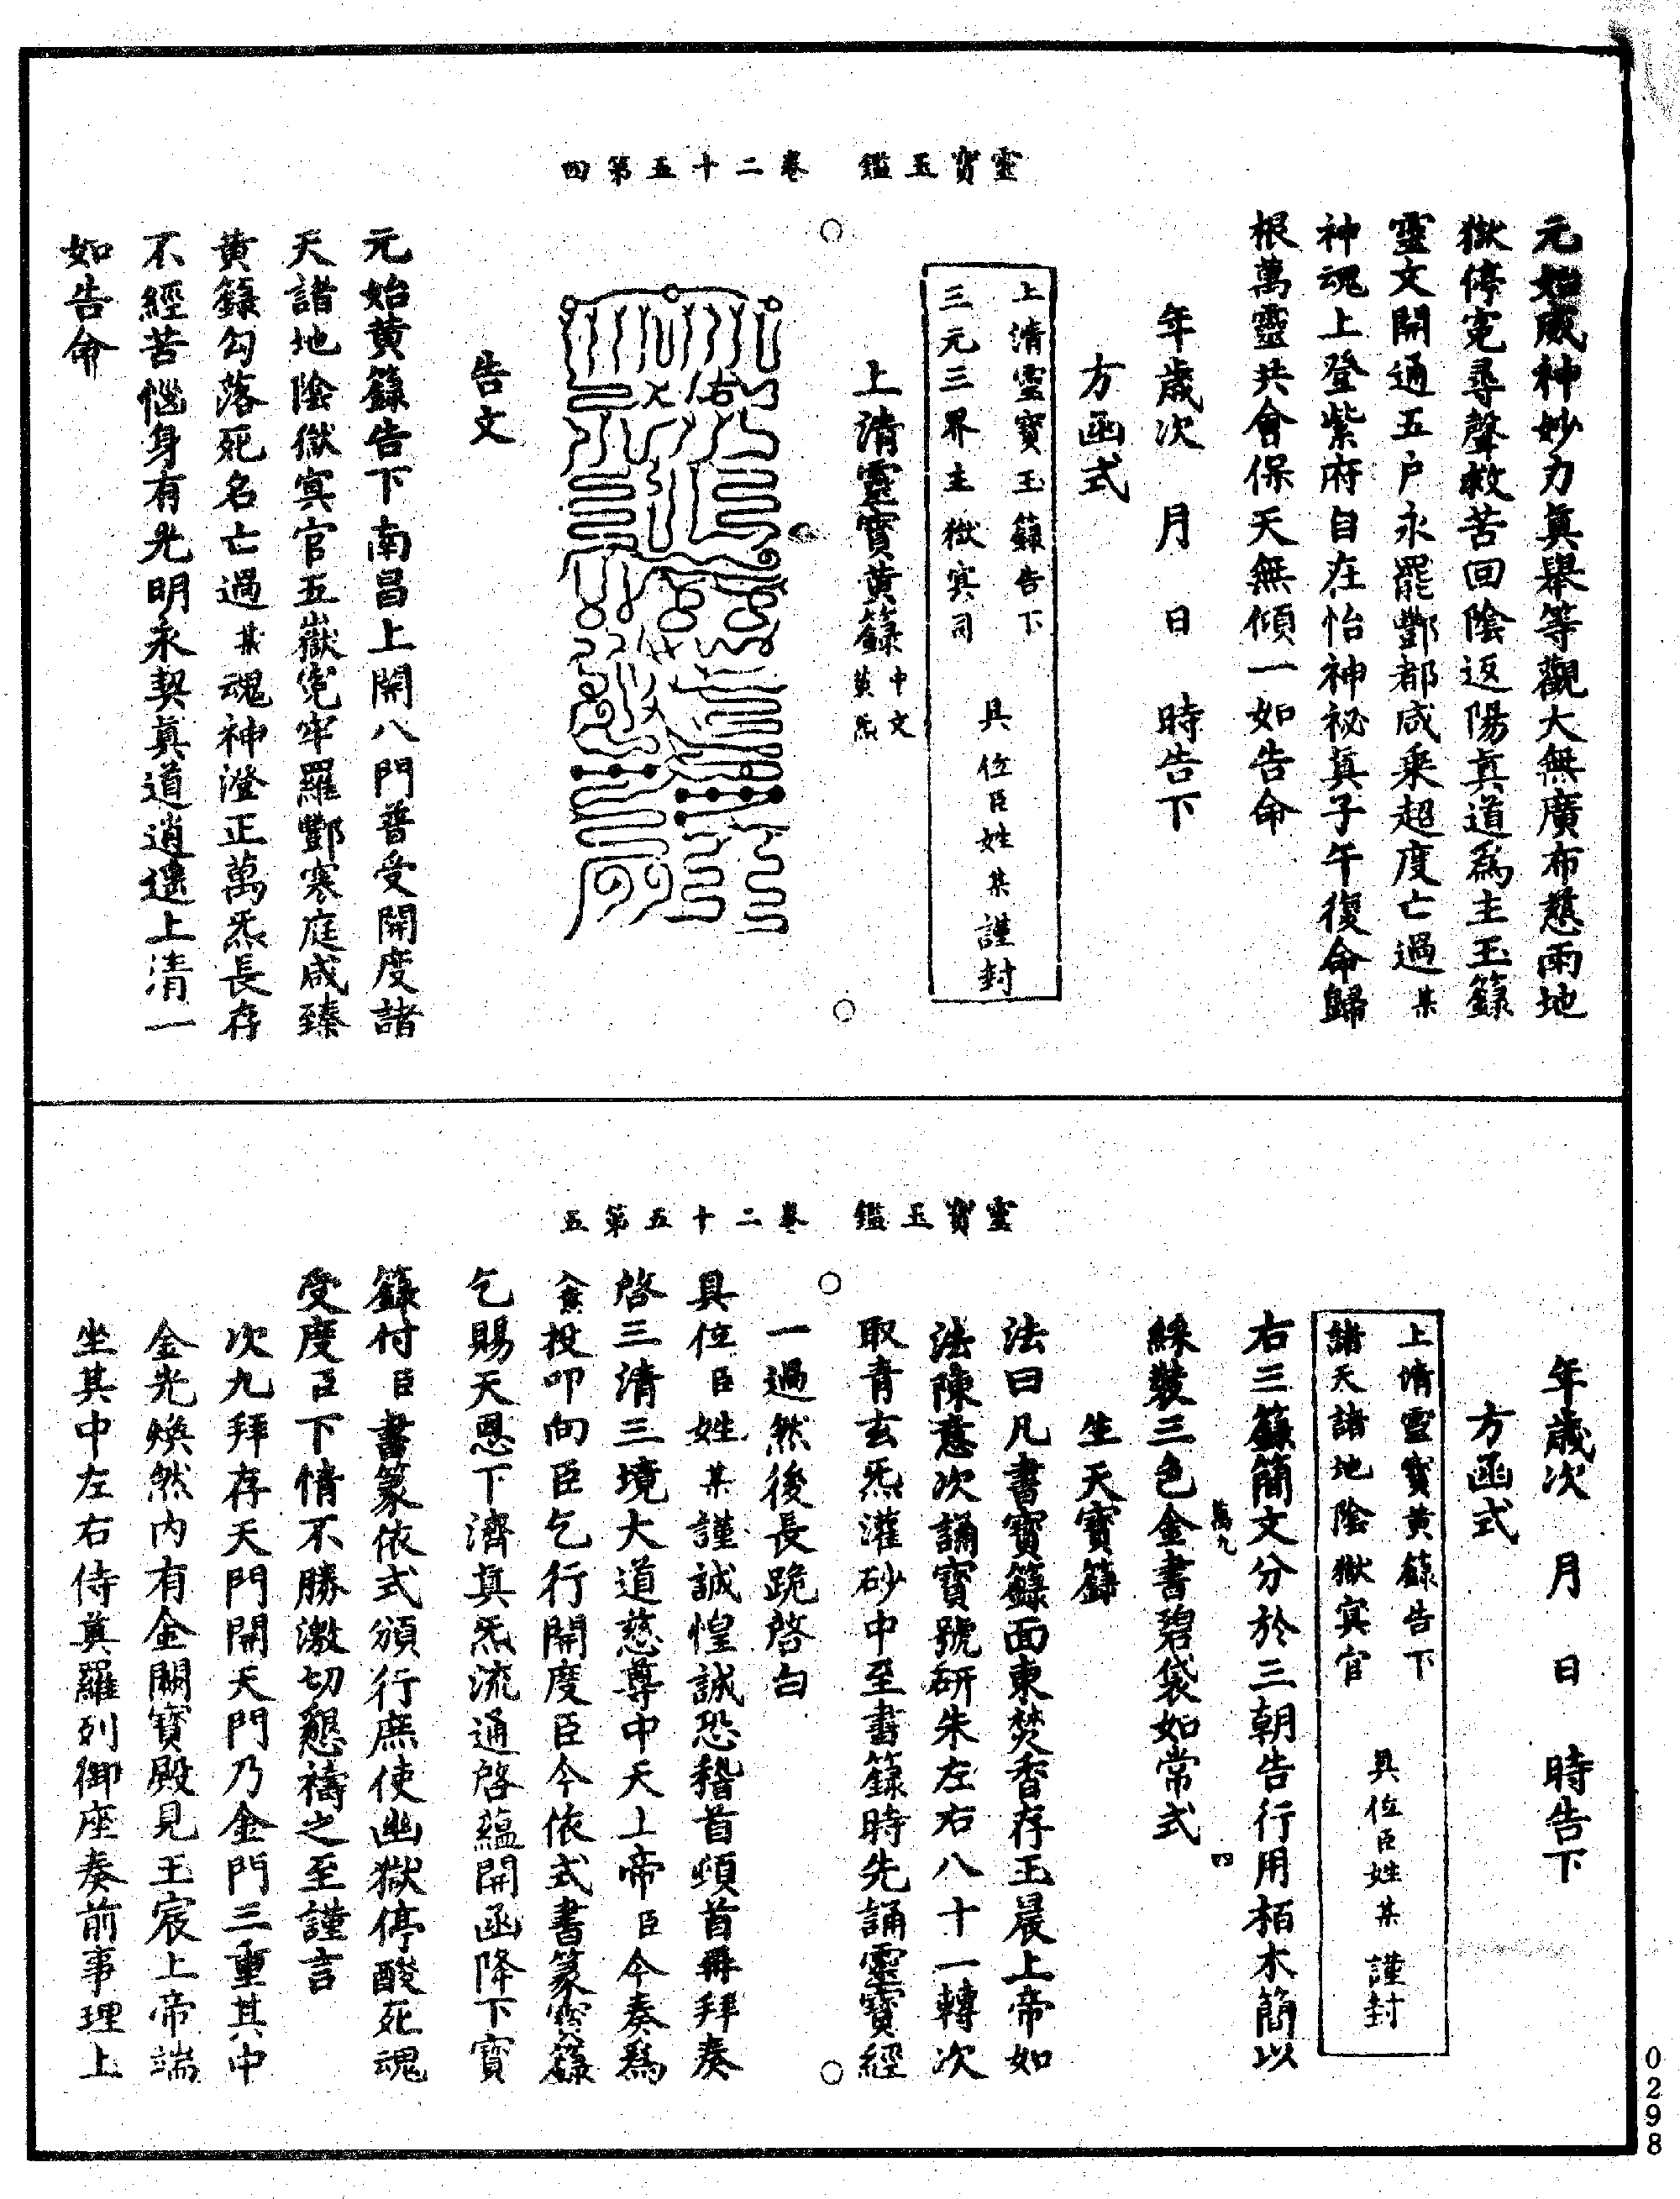 靈寶玉鑑　卷二十五第四
元始威神妙力眞舉等觀大無廣布慈雨地
獄停寃尋聲救苦回陰返陽眞道爲主玉籙
靈文開通五户永罷酆都咸乗超度亡過某
神魂上登紫府自在怡神祕眞子午復命歸
根萬靈共會保天無傾一如告命
年歲次　月　日　時告下
方函式
上清靈寶玉籙告下
三元三界主獄㝠司
具位臣姓某謹封
上清靈寶黄籙中文黄炁
告文
元始黄籙告下南昌上開八門普受開度諸
天諸地陰獄㝠官五嶽寃牢羅酆寒庭咸臻
黄籙勾落死名亡過某魂神澄正萬炁長存
不經苦惱身有光明永契眞道逍遥上清一
如告命
靈寶玉鑑　卷二十五第五
年歲次　月　日　時告下
方函式
上清靈寶黄籙告下
諸天諸地陰獄㝠官
具位臣姓某謹封
右三籙簡文分於三朝告行用栢木簡以
萬九　四
綵裝三色金書碧袋如常式
生天寶籙
法曰凡書寶籙面東焚香存玉晨上帝如
法陳意次誦寶號研朱左右八十一轉次
取青玄炁灌砂中至書籙時先誦靈寶經
一過然後長跪啓白
具位臣姓某謹誠惶誠恐稽首頓首再拜奏
啓三清三境大道慈尊中天上帝臣今奏爲
入意投叩向臣乞行開度臣今依式書篆靈籙
乞賜天恩下濟眞炁流通啓蘊開函降下寶
籙付臣書篆依式頒行庶使幽獄停酸死魂
受度臣下情不勝激切懇禱之至謹言
次九拜存天門開天門乃金門三重其中
金光煥然内有金闕寶殿見玉宸上帝端
坐其中左右侍眞羅列御座奏前事理上
0298